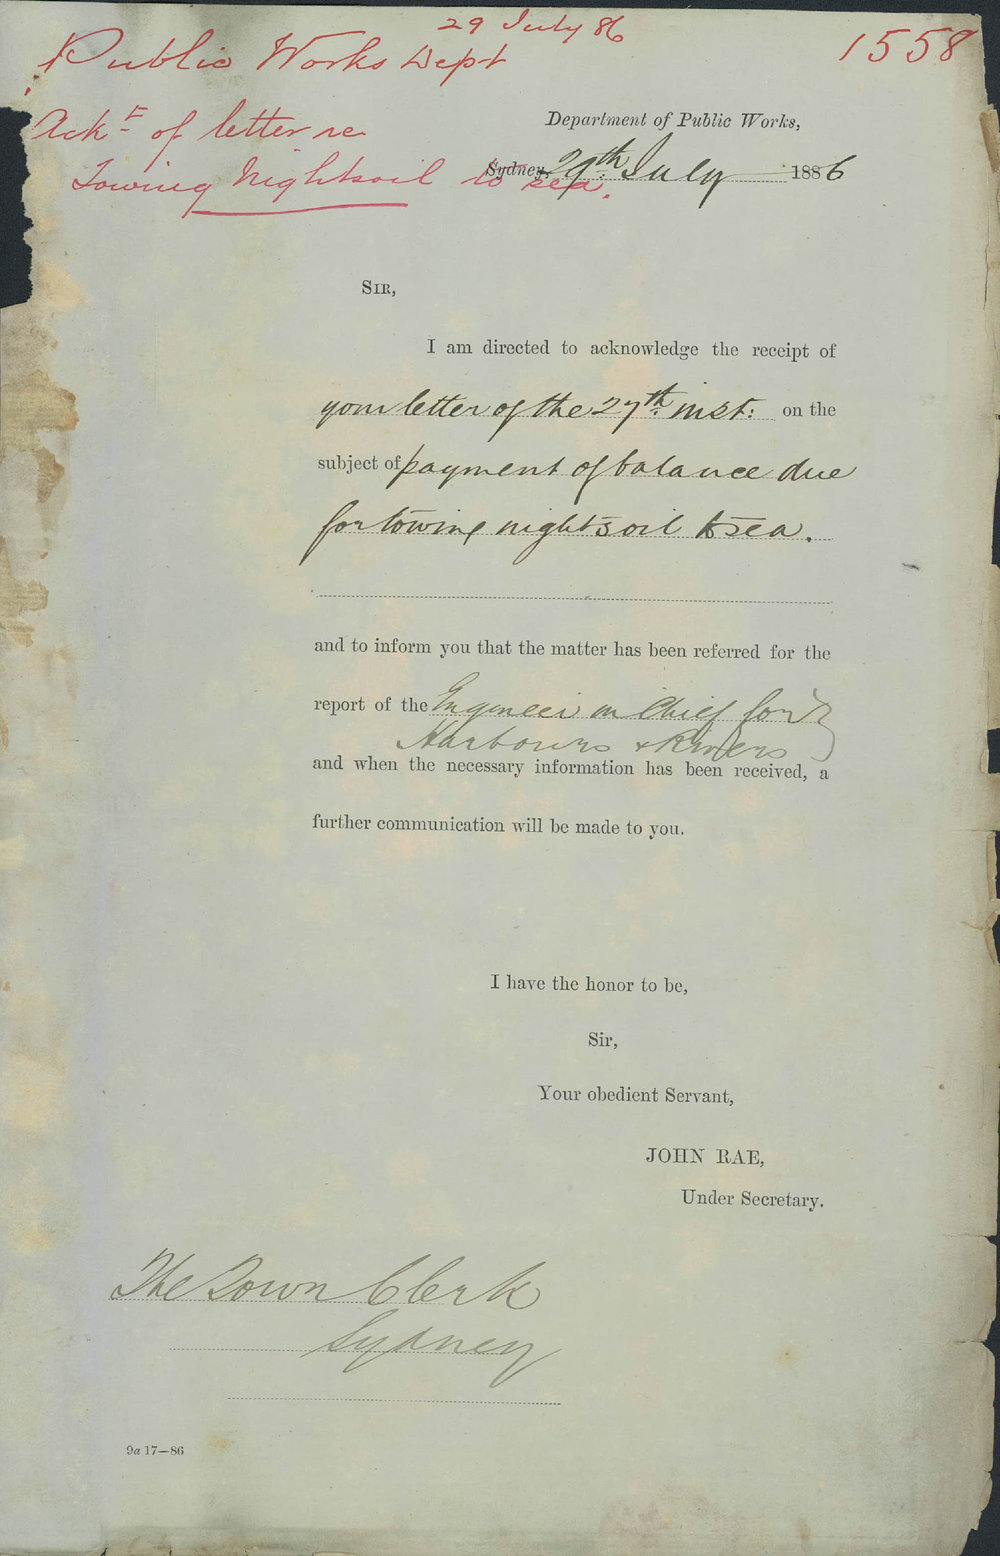 29 July 86
1558
Public Works Dept
Ackt of letter re
Towing Nightsoil to sea.
Department of Public Works,
Sydney, 29th July 1886
SIR,
I am directed to acknowledge the receipt of
your letter of the 27th inst: on the
subject of payment of balance due
for towing nightsoil to sea.
and to inform you that the matter has been referred for the
report of the Engineer in Chief for
Harbours & Rivers
and when the necessary information has been received, a
further communication will be made to you.
I have the honor to be,
Sir,
Your obedient Servant,
JOHN RAE,
Under Secretary.
The Town Clerk
Sydney
9a 17—86